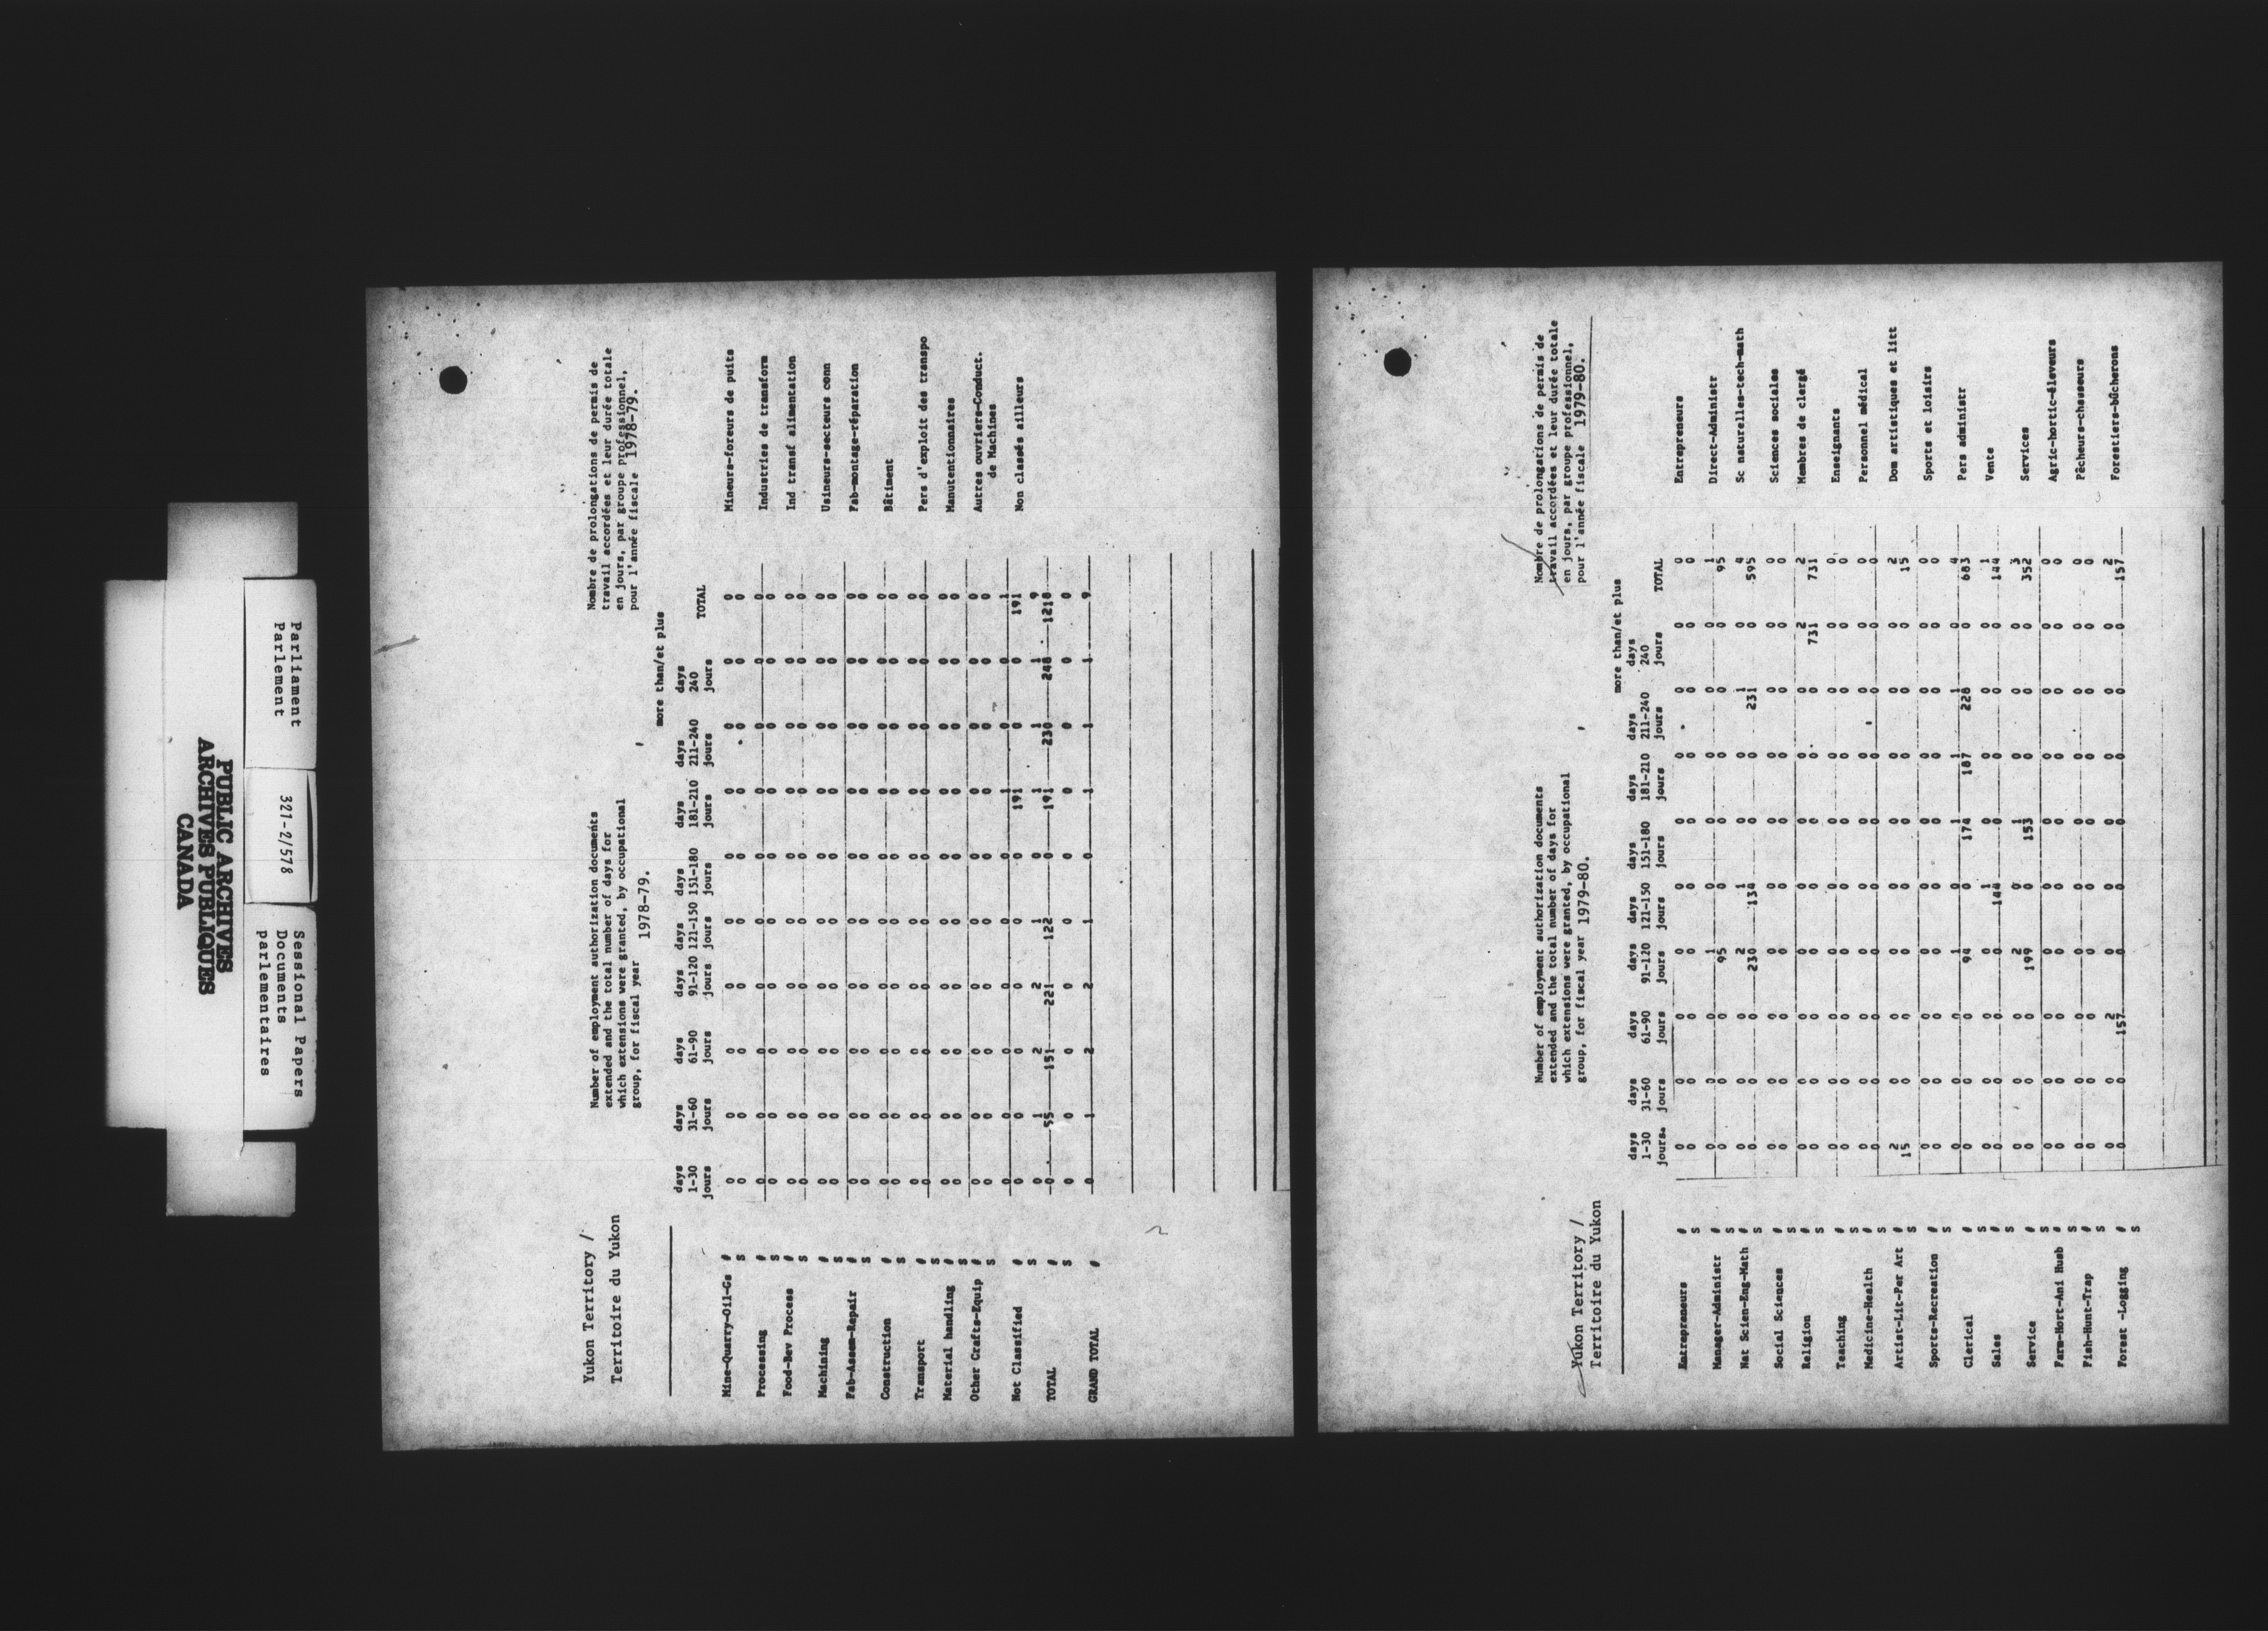 Parliament
Parlement
321-2/578
Sessional Papers
Documents
parlementaires
PUBLIC ARCHIVES
ARCHIVES PUBLIQUES
CANADA
Yukon Territory /
Territoire du Yukon
Number of employment authorization documents
extended and the total number of days for
which extensions were granted, by occupational
group, for fiscal year 1978-79.
Nombre de prolongations de permis de
travail accordées et leur durée totale
en jours, par groupe professionnel,
pour l'année fiscale 1978-79.
more than/et plus
days days days days days days days days days
1-30 31-60 61-90 91-120 121-150 151-180 181-210 211-240 240 TOTAL
jours jours jours jours jours jours jours jours jours
Mine-Quarry-Oil-Gs # 0 0 0 0 0 0 0 0 0 0 Mineurs-foreurs de puits
S 0 0 0 0 0 0 0 0 0 0
Processing # 0 0 0 0 0 0 0 0 0 0 Industries de transform
S 0 0 0 0 0 0 0 0 0 0
Food-Bev Process # 0 0 0 0 0 0 0 0 0 0 Ind transf alimentation
S 0 0 0 0 0 0 0 0 0 0
Machining # 0 0 0 0 0 0 0 0 0 0 Usineurs-secteurs conn
S 0 0 0 0 0 0 0 0 0 0
Fab-Assem-Repair # 0 0 0 0 0 0 0 0 0 0 Fab-montage-réparation
S 0 0 0 0 0 0 0 0 0 0
Construction # 0 0 0 0 0 0 0 0 0 0 Bâtiment
S 0 0 0 0 0 0 0 0 0 0
Transport # 0 0 0 0 0 0 0 0 0 0 Pers d'exploit des transpo
S 0 0 0 0 0 0 0 0 0 0
Material handling # 0 0 0 0 0 0 0 0 0 0 Manutentionnaires
S 0 0 0 0 0 0 0 0 0 0
Other Crafts-Equip # 0 0 0 0 0 0 0 0 0 0 Autres ouvriers-Conduct.
S 0 0 0 0 0 0 0 0 0 0 de Machines
Not Classified # 0 0 0 0 0 0 1 0 0 1 Non classés ailleurs
S 0 0 0 0 0 0 191 0 0 191
TOTAL # 0 1 2 2 1 0 1 1 1 9
S 0 55 151 221 122 0 191 230 248 1218
0 0 0 0 0 0 0 0 0 0
GRAND TOTAL # 0 1 2 2 1 0 1 1 1 9
Yukon Territory /
Territoire du Yukon
Number of employment authorization documents
extended and the total number of days for
which extensions were granted, by occupational
group, for fiscal year 1979-80.
Nombre de prolongations de permis de
travail accordées et leur durée totale
en jours, par groupe professionnel,
pour l'année fiscale 1979-80.
more than/et plus
days days days days days days days days days
1-30 31-60 61-90 91-120 121-150 151-180 181-210 211-240 240 TOTAL
jours jours jours jours jours jours jours jours jours
Entrepreneurs # 0 0 0 0 0 0 0 0 0 0 Entrepreneurs
S 0 0 0 0 0 0 0 0 0 0
Manager-Administr # 0 0 0 1 0 0 0 0 0 1 Direct-Administr
S 0 0 0 95 0 0 0 0 0 95
Nat Scien-Eng-Math # 0 0 0 2 1 0 0 1 0 4 Sc naturelles-tech-math
S 0 0 0 230 134 0 0 231 0 595
Social Sciences # 0 0 0 0 0 0 0 0 0 0 Sciences sociales
S 0 0 0 0 0 0 0 0 0 0
Religion # 0 0 0 0 0 0 0 0 2 2 Membres de clergé
S 0 0 0 0 0 0 0 0 731 731
Teaching # 0 0 0 0 0 0 0 0 0 0 Enseignants
S 0 0 0 0 0 0 0 0 0 0
Medicine-Health # 0 0 0 0 0 0 0 0 0 0 Personnel médical
S 0 0 0 0 0 0 0 0 0 0
Artist-Lit-Per Art # 2 0 0 0 0 0 0 0 0 2 Dom artistiques et litt
S 15 0 0 0 0 0 0 0 0 15
Sports-Recreation # 0 0 0 0 0 0 0 0 0 0 Sports et loisirs
S 0 0 0 0 0 0 0 0 0 0
Clerical # 0 0 0 1 0 1 1 1 0 4 Pers administr
S 0 0 0 94 0 174 187 228 0 683
Sales # 0 0 0 0 1 0 0 0 0 1 Vente
S 0 0 0 0 144 0 0 0 0 144
Service # 0 0 0 2 0 1 0 0 0 3 Services
S 0 0 0 199 0 153 0 0 0 352
Farm-Hort-Ani Husb # 0 0 0 0 0 0 0 0 0 0 Agric-hortic-éleveurs
S 0 0 0 0 0 0 0 0 0 0
Fish-Hunt-Trap # 0 0 0 0 0 0 0 0 0 0 Pêcheurs-chasseurs
S 0 0 0 0 0 0 0 0 0 0
Forest -Logging # 0 0 2 0 0 0 0 0 0 2 Forestiers-bûcherons
S 0 0 157 0 0 0 0 0 0 157